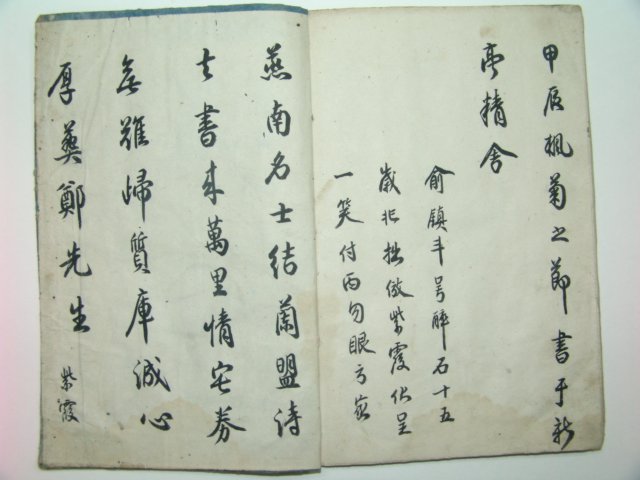 甲辰楓菊之節書于新
亭精舍
俞鎮斗号醉石十五
歲非拙倣紫霞伏呈
一笑付丙勿眼
燕南名士結蘭盟詩
去書來萬里情宅券
無難歸質庫誠心
厚葬鄭先生 紫霞